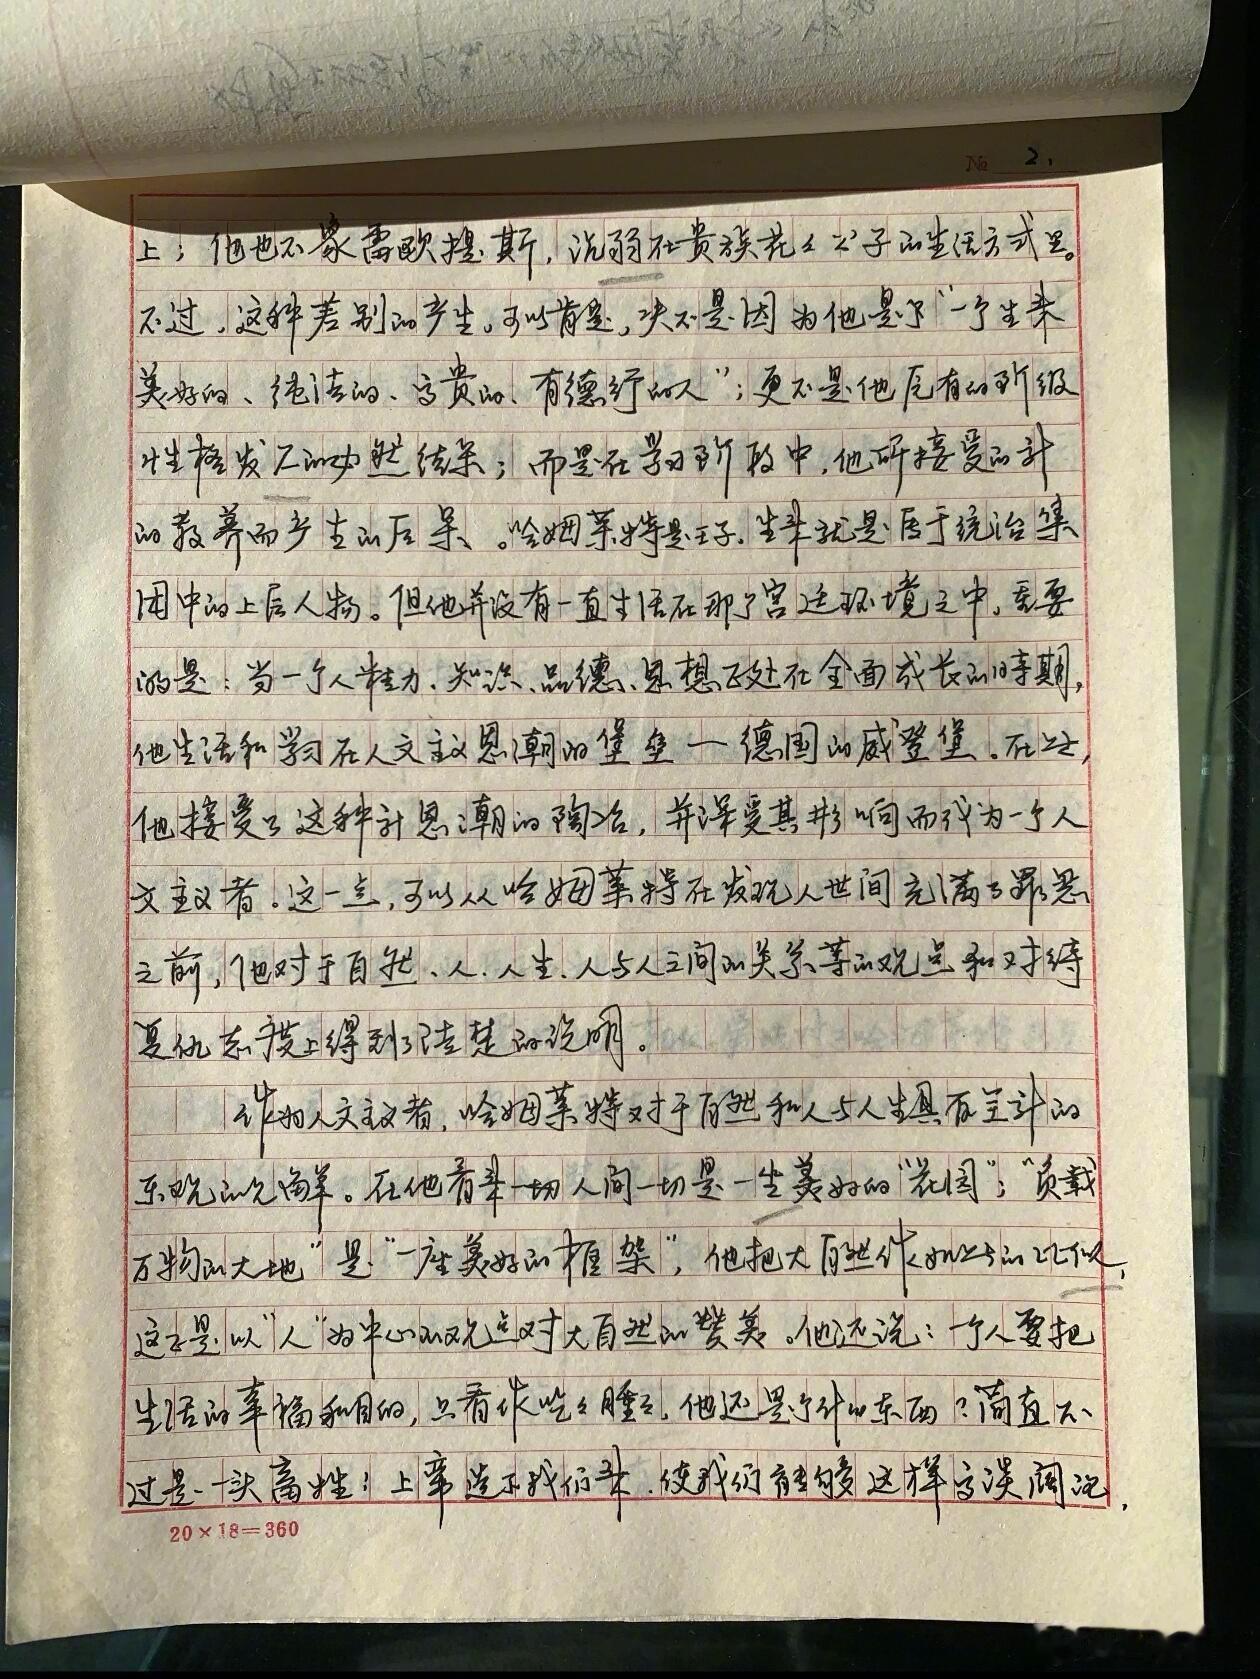 № 2.
上；他也不象雷欧提斯，沉溺在贵族花花公子的生活方式里。
不过，这种差别的产生，可以肯定，决不是因为他是个“一个生来
美好的、纯洁的、高贵的、有德行的人”；更不是他固有的阶级
性格发展的必然结果；而是在学习阶段中，他所接受的
的教养而产生的后果。哈姆莱特是王子，生来就是属于统治集
团中的上层人物。但他并没有一直生活在那个宫廷环境之中，重要
的是：当一个人精力、知识、品德、思想正处在全面成长的时期，
他生活和学习在人文主义思潮的堡垒—德国的威登堡。在这，
他接受了这种思潮的陶冶，并深受其影响而成为一个人
文主义者。这一点，可以从哈姆莱特在发现人世间充满了罪恶
之前，他对于自然、人、人生、人与人之间的关系等的观点和对待
复仇态度上得到了清楚的说明。
作为人文主义者，哈姆莱特对于自然和人与人生具有全新的
乐观的见解。在他看来一切人间一切是一座美好的“花园”；“负载
万物的大地”是“一座美好的框架”，他把大自然作如此的比似，
这正是以“人”为中心的观点对大自然的赞美。他还说：一个人要把
生活的幸福和目的，只看作吃吃睡睡，他还是个什么东西？简直不
过是一头畜牲！上帝造下我们来，使我们能够这样高谈阔论，
20×18=360